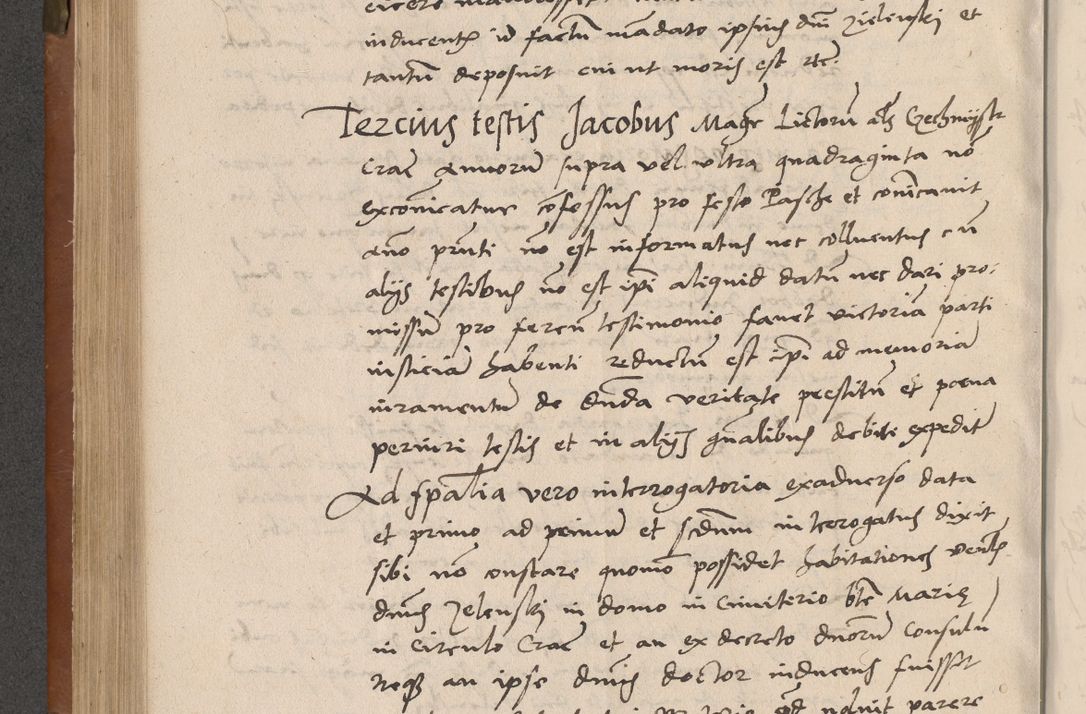 inducentis id factum mandato ipsius dni Zielenski et
tantum deposuit cui ut moris est etc.
Tercius testis Jacobus Magr Lictorum als Czechmystr
Crac annorum supra vel ultra quadraginta no
exconicatur cofessus pro festo Pasche et conicauit
ano prnti no est informatus nec colluentus cu
alijs testibus no est ipi aliquid datum nec dari pro:
missum pro ferendo testimonio fauet victoria parti
iusticia habenti reductum est ipi ad memoria
iuramentum de dnda veritate prestitu et poena
periuri testis et in alijs gnalibus debite expedit
Ad spalia vero interrogatoria exaduerso data
et primo ad primum et scdum interrogatus dixit
sibi no constare quomo possidet habitationes venlis
dnus Zelenski in domo in Cimiterio bte Marie
in Circulo Crac et an ex decreto dnorum Consulu
Neque an ipse dnus doctor inducens fuisset
noluit parere